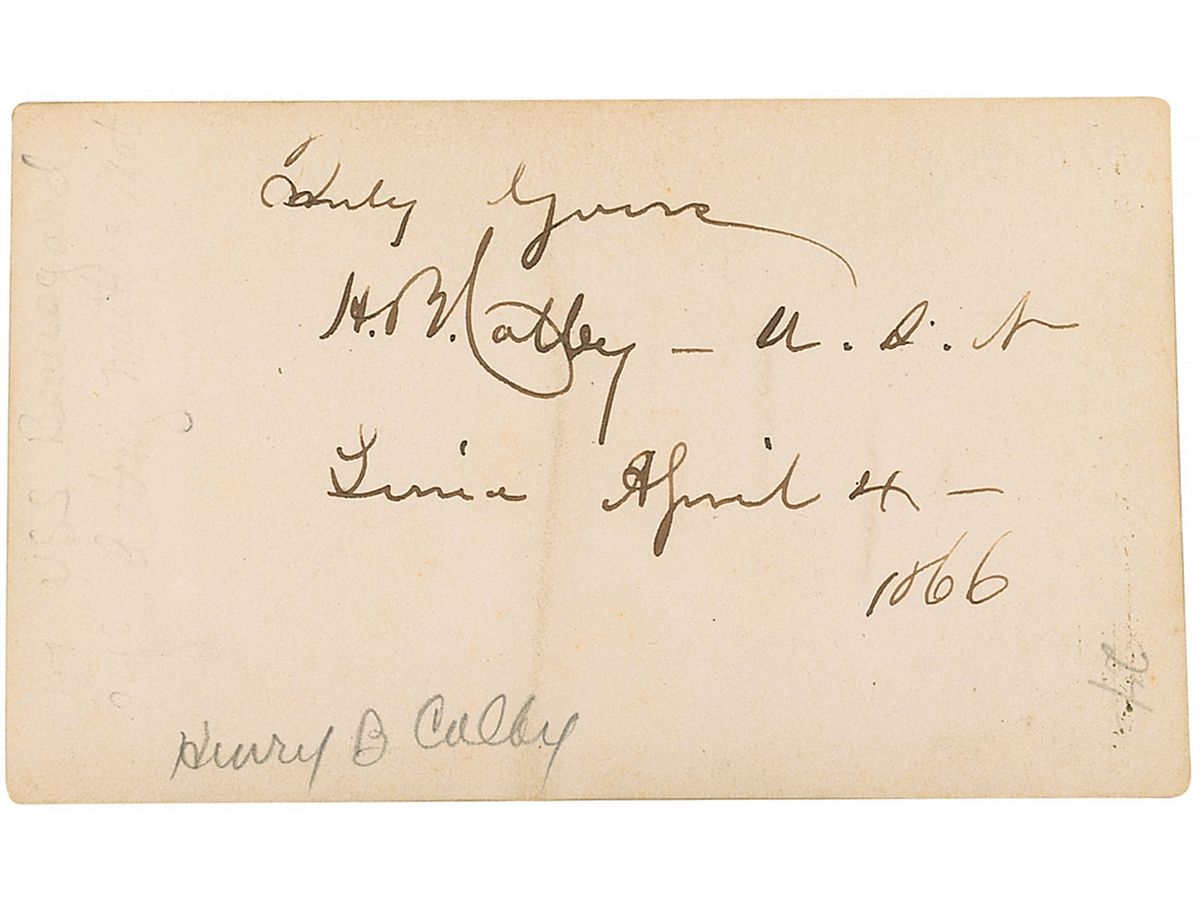 Truly Yours
H. B. Colby – U. S. N
Lima April 4 –
1866
Henry B Colby